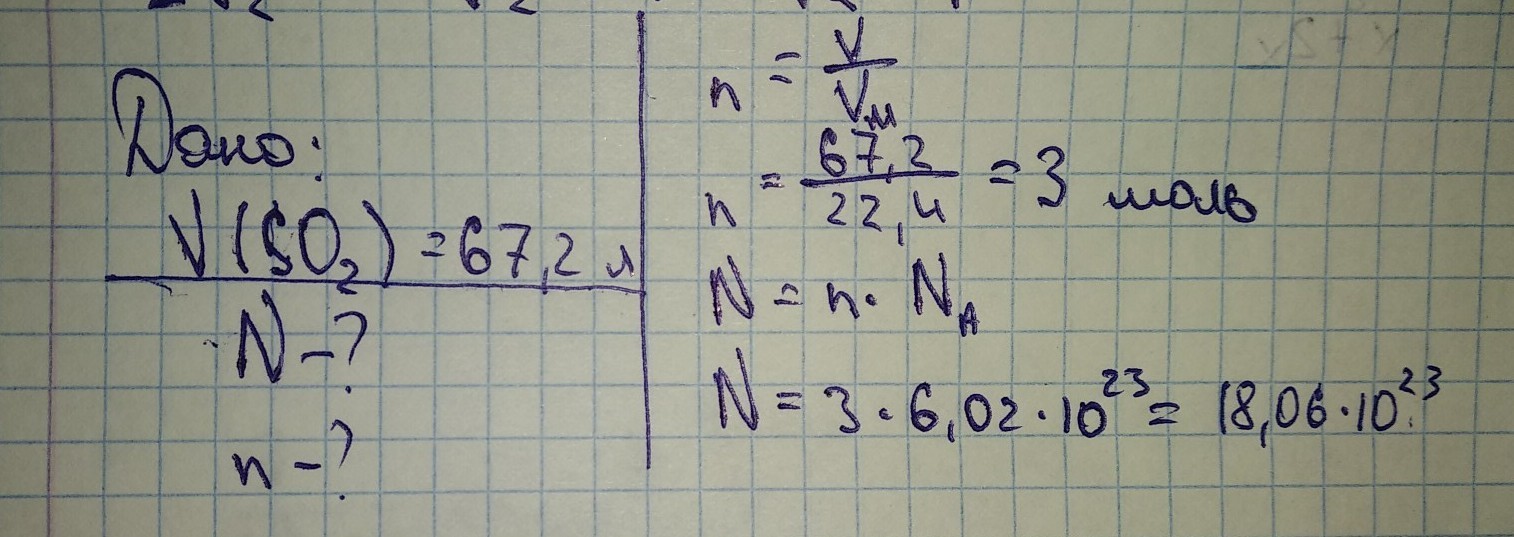 Дано:
V(SO₂) = 67,2 л
N - ?
n - ?
n = V/Vм
n = 67,2/22,4 = 3 моль
N = n · Nᴀ
N = 3 · 6,02 · 10²³ = 18,06 · 10²³